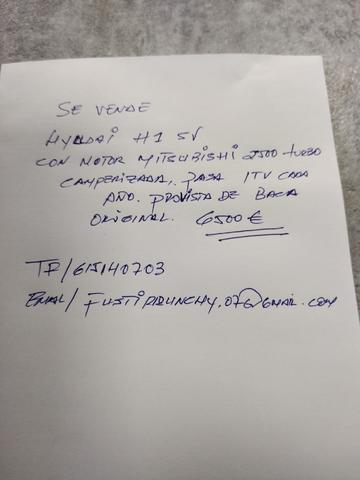 SE VENDE
HYUDAI H1 SV
CON MOTOR MITSUBISHI 2500 turbo
CAMPERIZADA, PASA ITV CADA
AÑO. PROVISTA DE BACA
ORIGINAL. 6500 €
TF/615140703
EMAL/ @GMAIL.COM